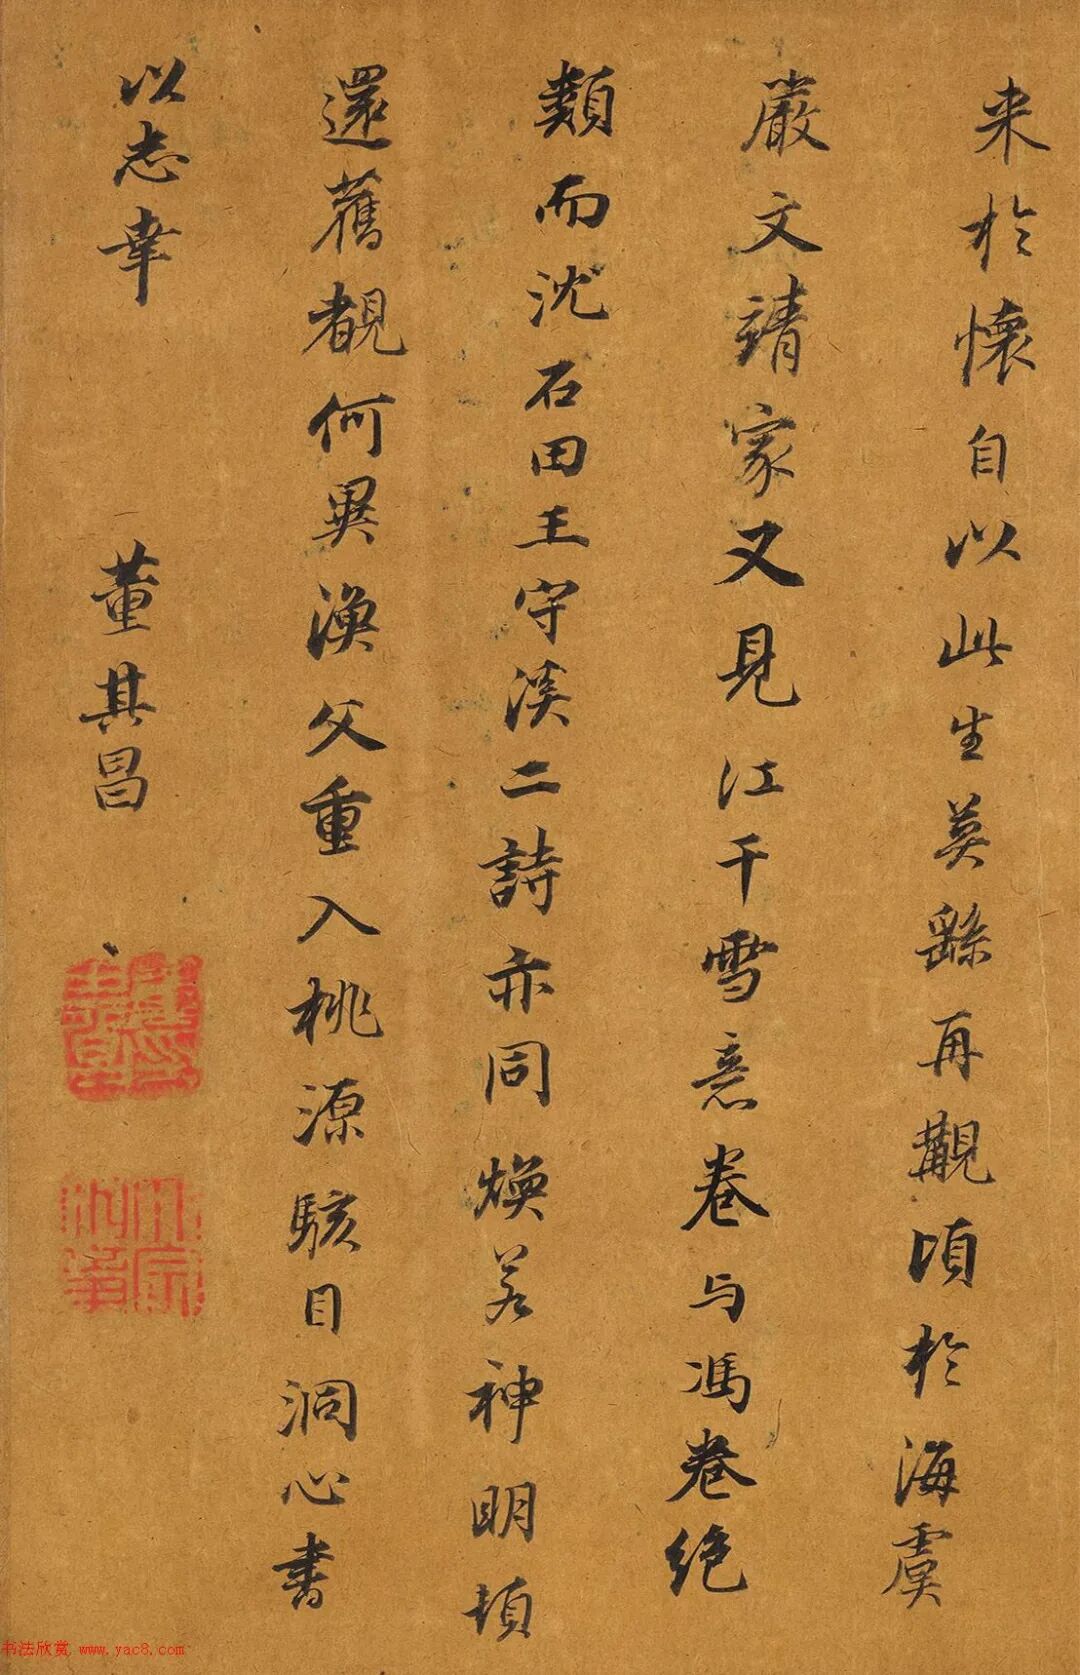 来於懷自以此生莫繇再觀頃於海虞
嚴文靖家又見江干雪意卷与馮卷绝
類而沈石田王守溪二詩亦同煥若神明頓
還舊覩何異漁父重入桃源駭目洞心書
以志幸
董其昌
书法欣赏 www.yac8.com